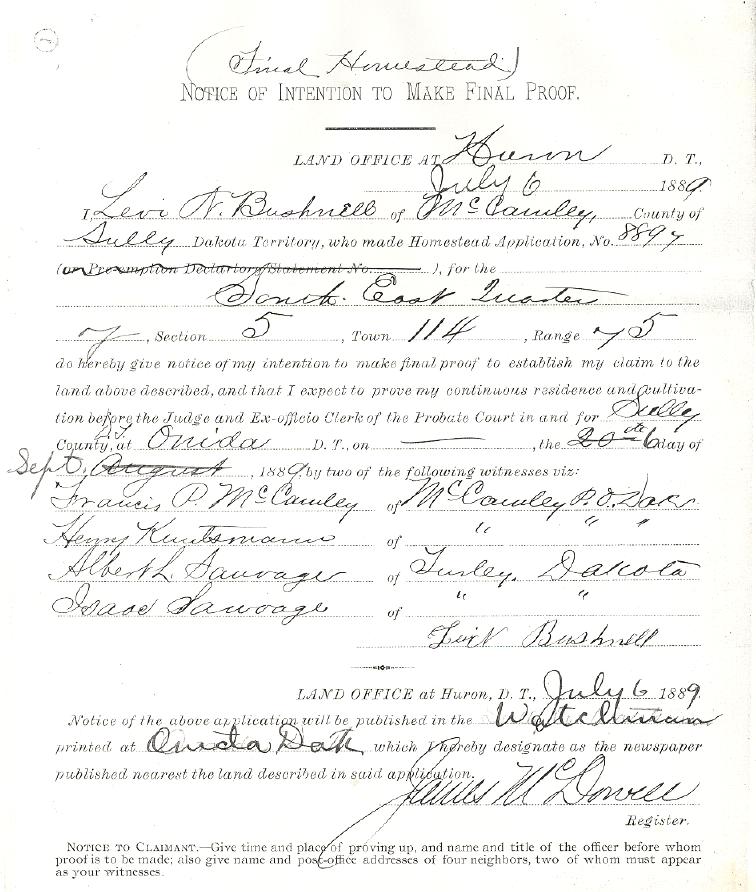 (Final Homestead)
NOTICE OF INTENTION TO MAKE FINAL PROOF.
LAND OFFICE AT Huron D. T.,
July 6 1889.
I, Levi N. Bushnell of McCawley, County of
Sully Dakota Territory, who made Homestead Application, No. 8897
(or Pre-emption Declartory Statement No. ), for the
South East Quarter
of, Section 5, Town 114, Range 75
do hereby give notice of my intention to make final proof to establish my claim to the
land above described, and that I expect to prove my continuous residence and cultiva-
tion before the Judge and Ex-officio Clerk of the Probate Court in and for Sully
County, at Onida D. T., on —, the 6 day of
Sept, August, 1889, by two of the following witnesses viz:
Francis P. McCawley of McCawley P.O. Dak
Henry Kuntsmann of " " "
Albert L. Sauvage of Dakota
Isaac Sauvage of " "
Bushnell
LAND OFFICE at Huron, D. T., July 6 1889.
Notice of the above application will be published in the Watchman
printed at Onida Dak which I hereby designate as the newspaper
published nearest the land described in said application.
James McDowell
Register.
NOTICE TO CLAIMANT.—Give time and place of proving up, and name and title of the officer before whom
proof is to be made; also give name and post-office addresses of four neighbors, two of whom must appear
as your witnesses.